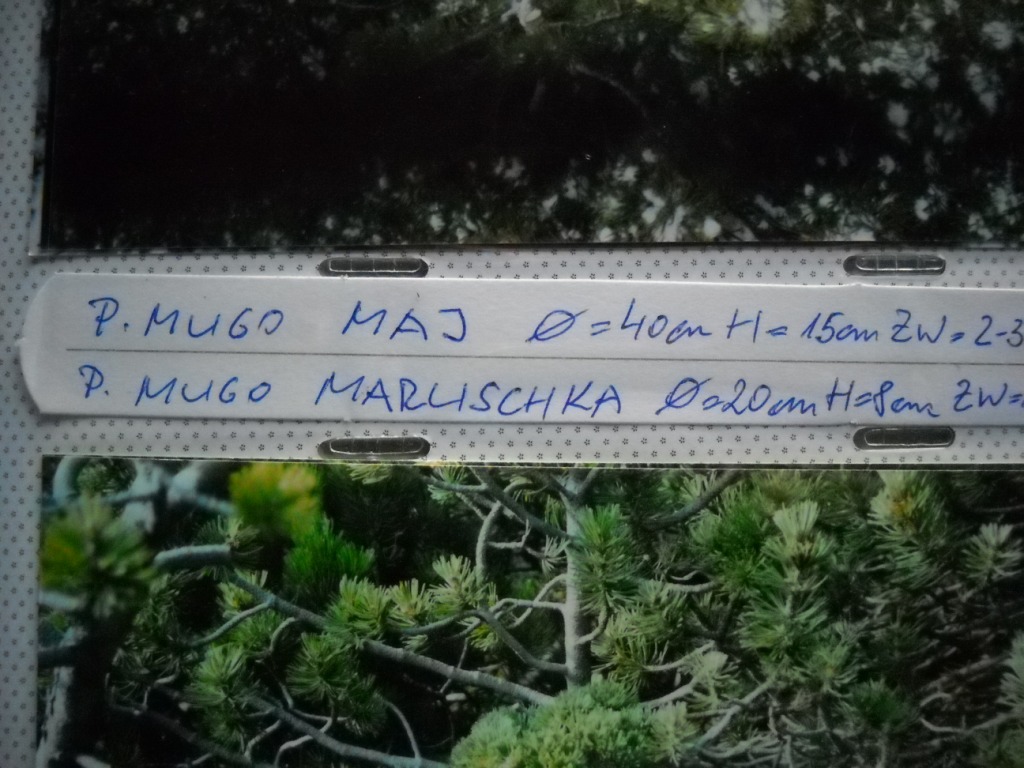 P. MUGO MAJ Ø = 40cm H = 15cm ZW = 2-3
P. MUGO MARUSCHKA Ø = 20cm H = 8cm ZW =